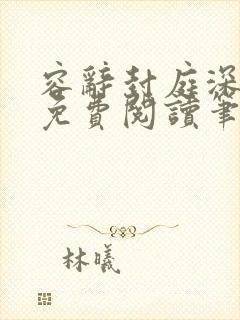 容辭封庭深
免費閱讀筆
林曦